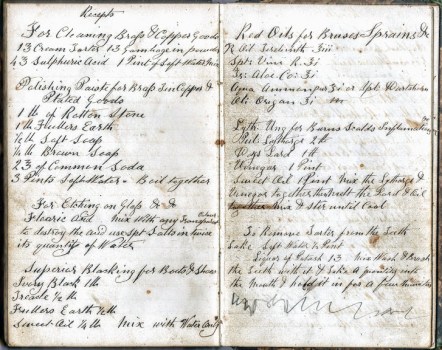 Recepts
For Cleaning Brass & Copper Goods
13 Cream Tarter 13 in powder
43 Sulphuric Acid 1 Pint of Soft Water Mix
Polishing Paiste for Brass Tin Copper &
Plated Goods
1 lb of Rotten Stone
1 lb Fullers Earth
½ lb Soft Soap
¼ lb Brown Soap
23 of Common Soda
2 Pints Soft Water - Boil together
For Etching on Glass & &
Flearic Acid Mix With any
to destroy the acid use spt Salts in twice
its quantity of Water
Superier Blacking for Boots & Shoes
Ivory Black 1 lb
Treacle ½ lb
Fullers Earth ½ lb
Sweet Oil ¼ lb Mix with Water Only
Red Oils for Bruses Sprains &c
R Oil
Spt: Vine R. 3i
Tr: Aloe Co: 3i
3i or Spt: Hartshorn
Oli Origan 3i m
Lyth: Ung for Burns Scalds Inflamation
Pul: Lytharge 2 lb
Hogs Lard 1 lb
Venegar 1 Pint
Sweet Oil 1 Pint Mix the Lytharge &
Venegar together then Melt the Lard & Oil
together Mix & Ster until Cool
To Remove Tarter from the Teeth
Take Soft Water ½ Pint
Liquor of Potash 13 Mix Wash & Brush
the Teeth with it & Take a into
the Mouth & hold it in for a few minutes